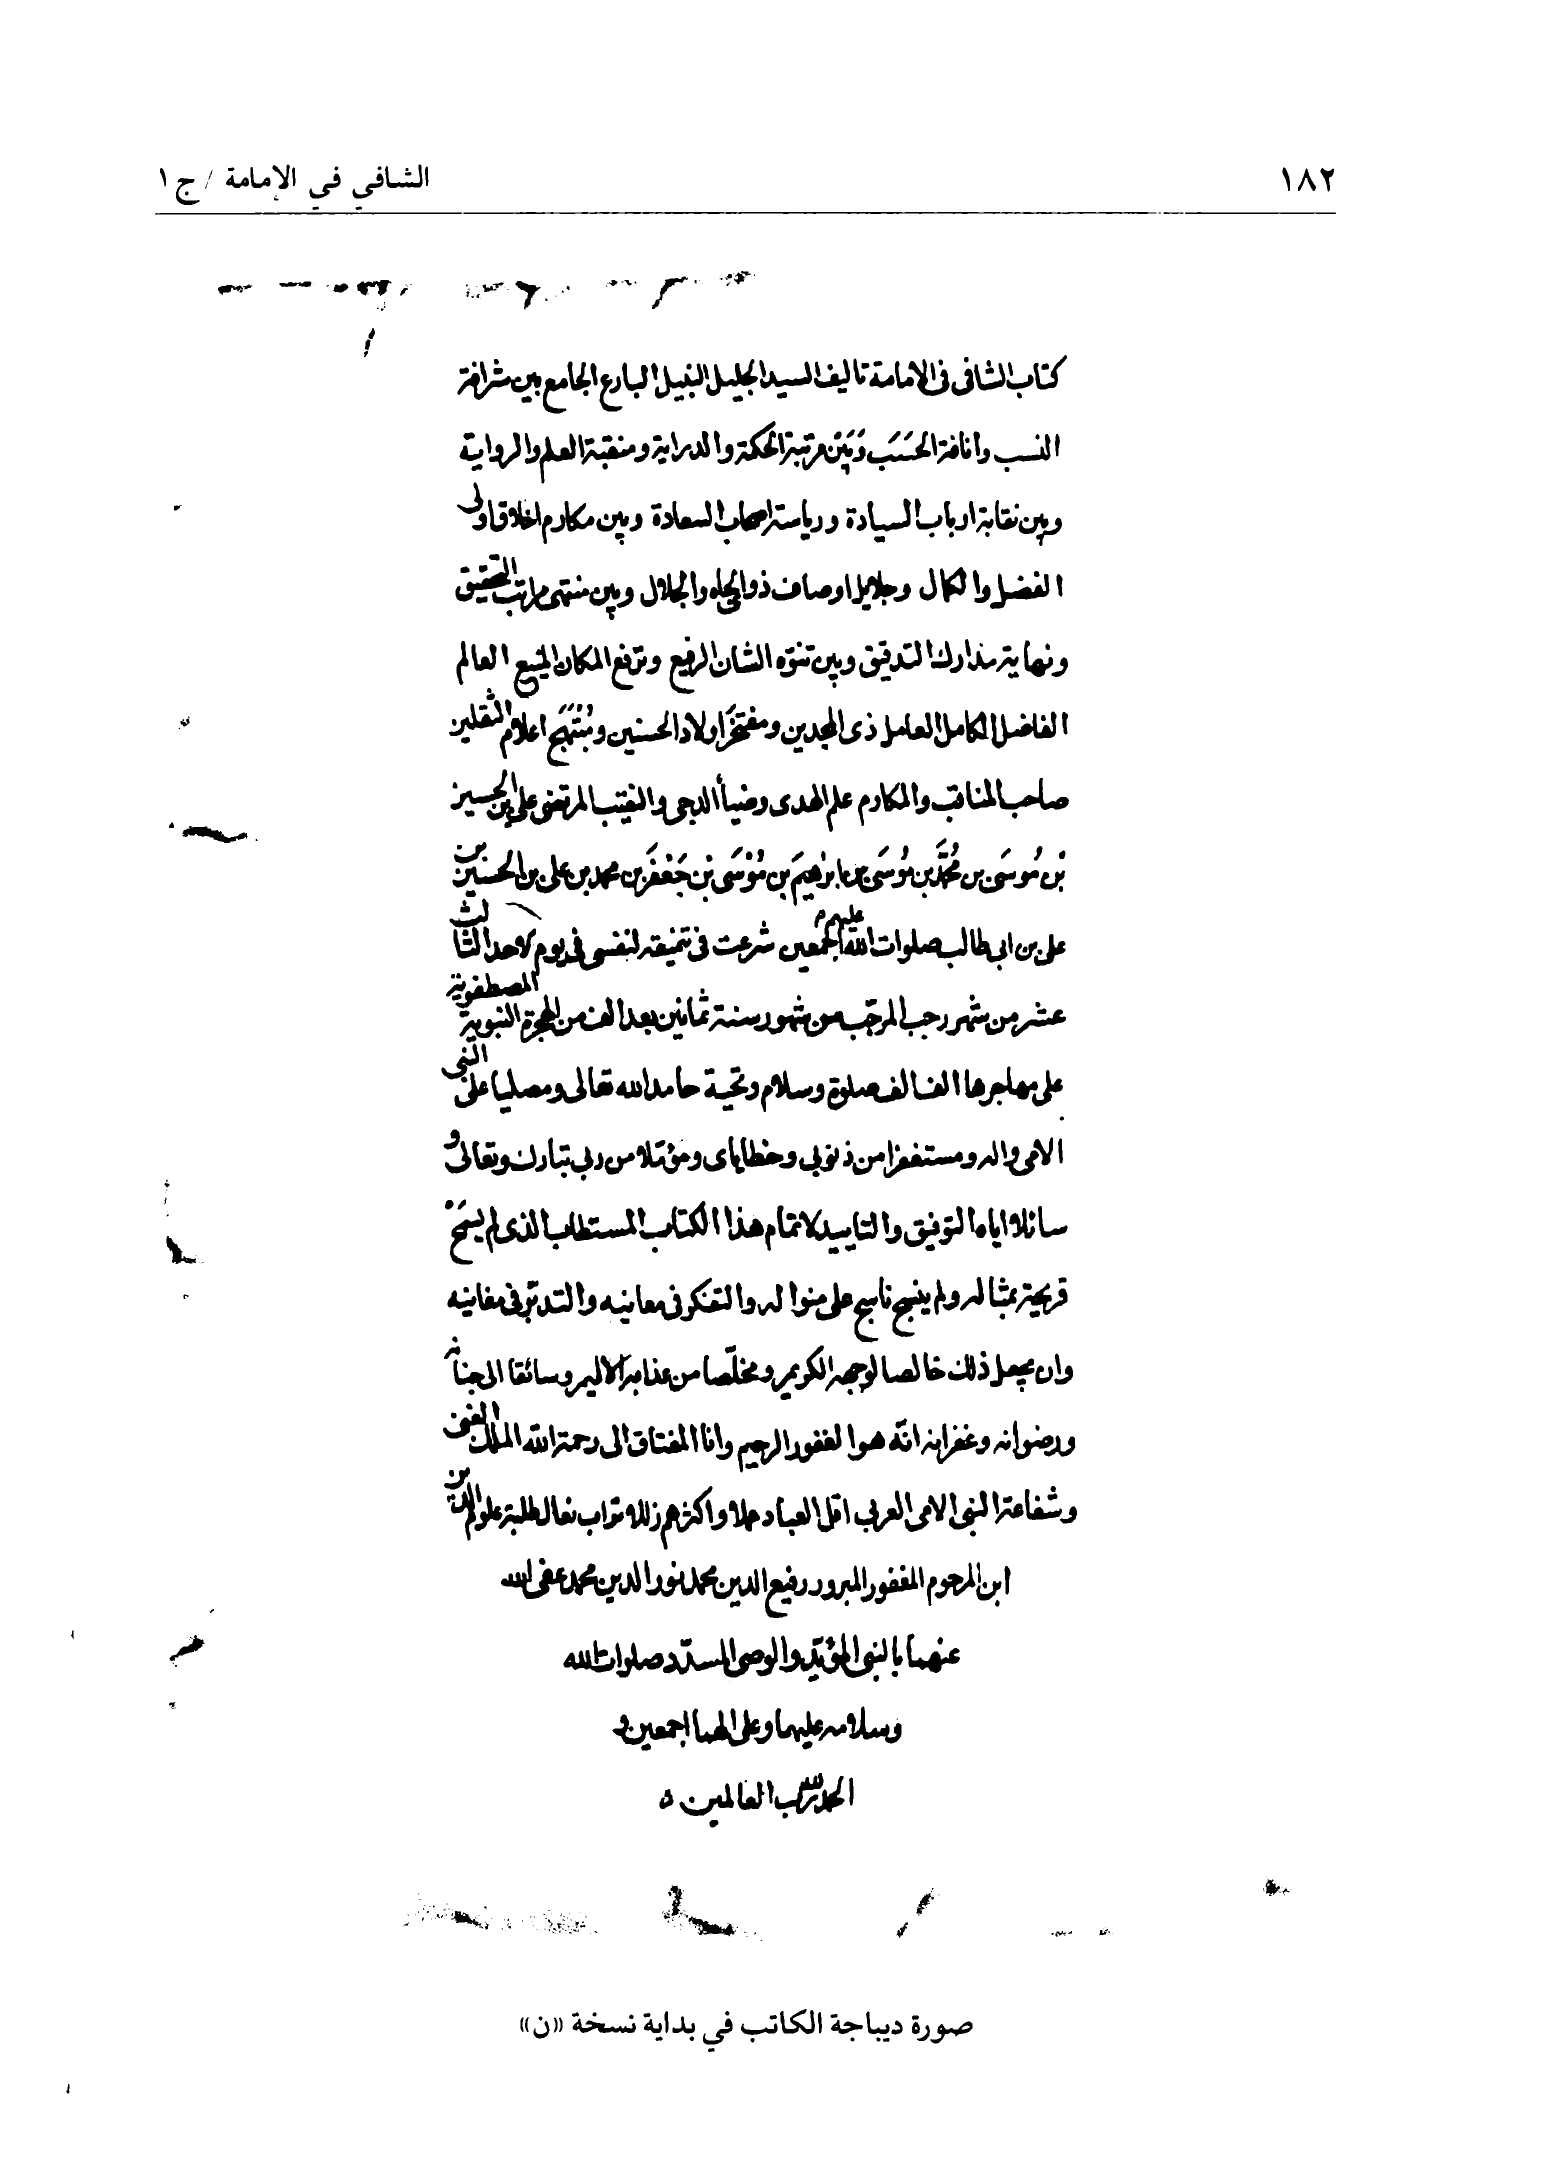 ١٨٢
الشافي في الإمامة / ج١
كتاب الشافى فى الامامة تاليف السيد الجليل النبيل البارع الجامع بين شرافة
النسب وانافة الحَسَب وَبَيْن مرتبة الحكمة والدراية ومنقبة العلم والرواية
وبين نقابة ارباب السيادة ورياسة اصحاب السعادة وبين مكارم اخلاق اولى
الفضل والكمال وجلايل اوصاف ذو الجاه والجلال وبين منتهى مراتب التحقيق
ونهاية مدارك التدقيق وبين تنوّه الشان الرفيع وترفع المكان المنيع العالم
الفاضل الكامل العامل ذى المجدين ومفتخَر اولاد الحسنين ومُبْتَهَج اعلام الثقلين
صاحب المناقب والمكارم علم الهدى وضيأ الدجى والنقيب المرتضى على بن الحسين
بْن مُوسَى بن مُحمَّد بن مُوسَى بن ابرٰهيمَ بن مُوْسَى بْن جَعْفَر بن محمد بن على بن الحسين بن
على بن ابى طالب صلوات الله عليهم اجمعين شرعت فى تنميقه لنفسى فى يوم الاحد الثالث
عشر من شهر رجب المرجّب من شهور سنة ثمانين بعد الف من الهجرة النبوية المصطفوية
على مهاجرها الف الف صلوة وسلام وتحية حامدا لله تعالى ومصليا على النبى
الامى واله ومستغفرا من ذنوبى وخطاياى ومؤملا من ربى تبارك وتعالى و
سائلا اياه التوفيق والتاييد لاتمام هذا الكتاب المستطاب الذى لم يسمَحْ
قريحة بمثاله ولم ينسج ناسج على منواله والتفكر فى معانيه والتدبّر فى مغانيه
وان يجعل ذلك خالصا لوجهه الكريم ومخلّصا من عذابه الاليم وسائقا الى جنانه
ورضوانه وغفرانه انّه هو الغفور الرحيم وانا المفتاق الى رحمة الله الملك الغنى
وشفاعة النبى الامى العربى اقل العباد عملا واكثرهم زللا تراب نعال طلبة علوم الدين
ابن المرحوم المغفور المبرور رفيع الدين محمد نور الدين محمد عفى الله
عنهما بالنبى المؤيّد والوصى المسدّد صلوات الله
وسلامه عليهما وعلى الهما اجمعين و
الحمد لله رب العالمين
صورة ديباجة الكاتب في بداية نسخة «ن»